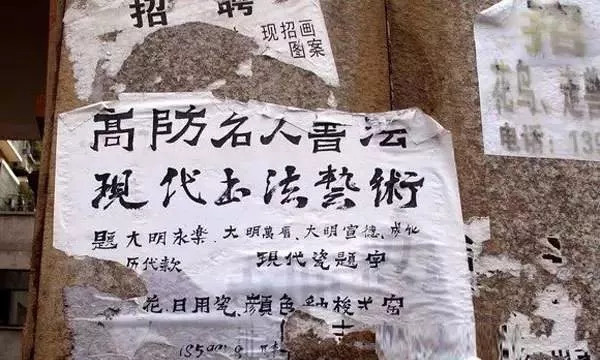 招聘
现招画
图案
花鸟、走兽
电话：139
高防名人書法
現代书法藝術
题 大明永楽、大明萬曆、大明宣德、成化
历代款 現代瓷题字
花、日用瓷、顔色釉梭式窑